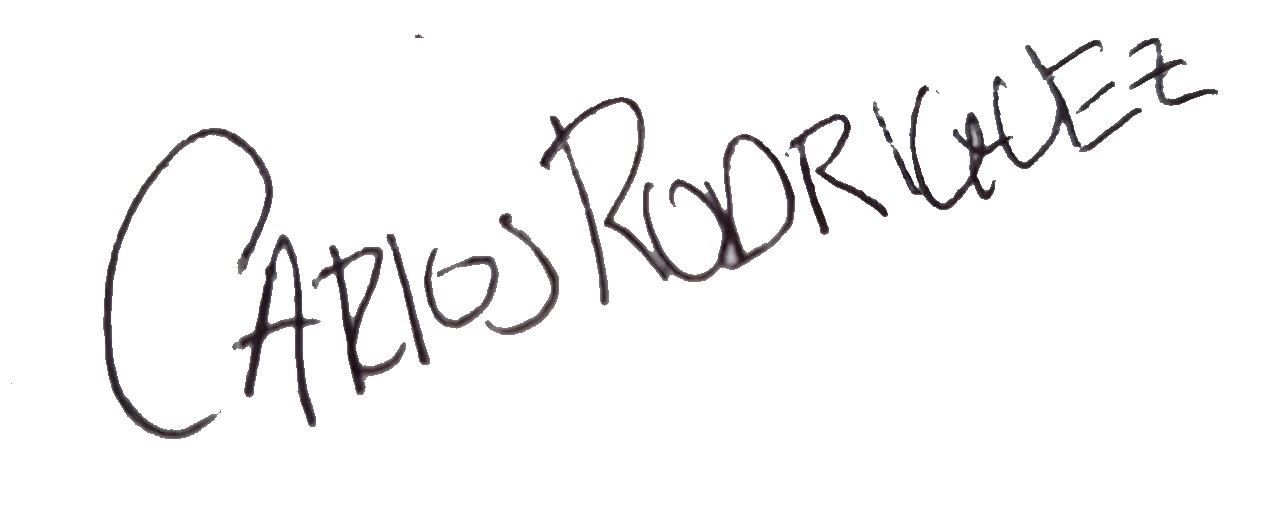 CARlOS RODRIGUEZ